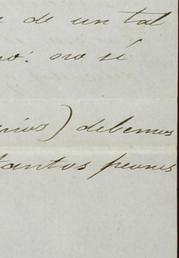 de un tal
no sé
) debemos
tantos peones